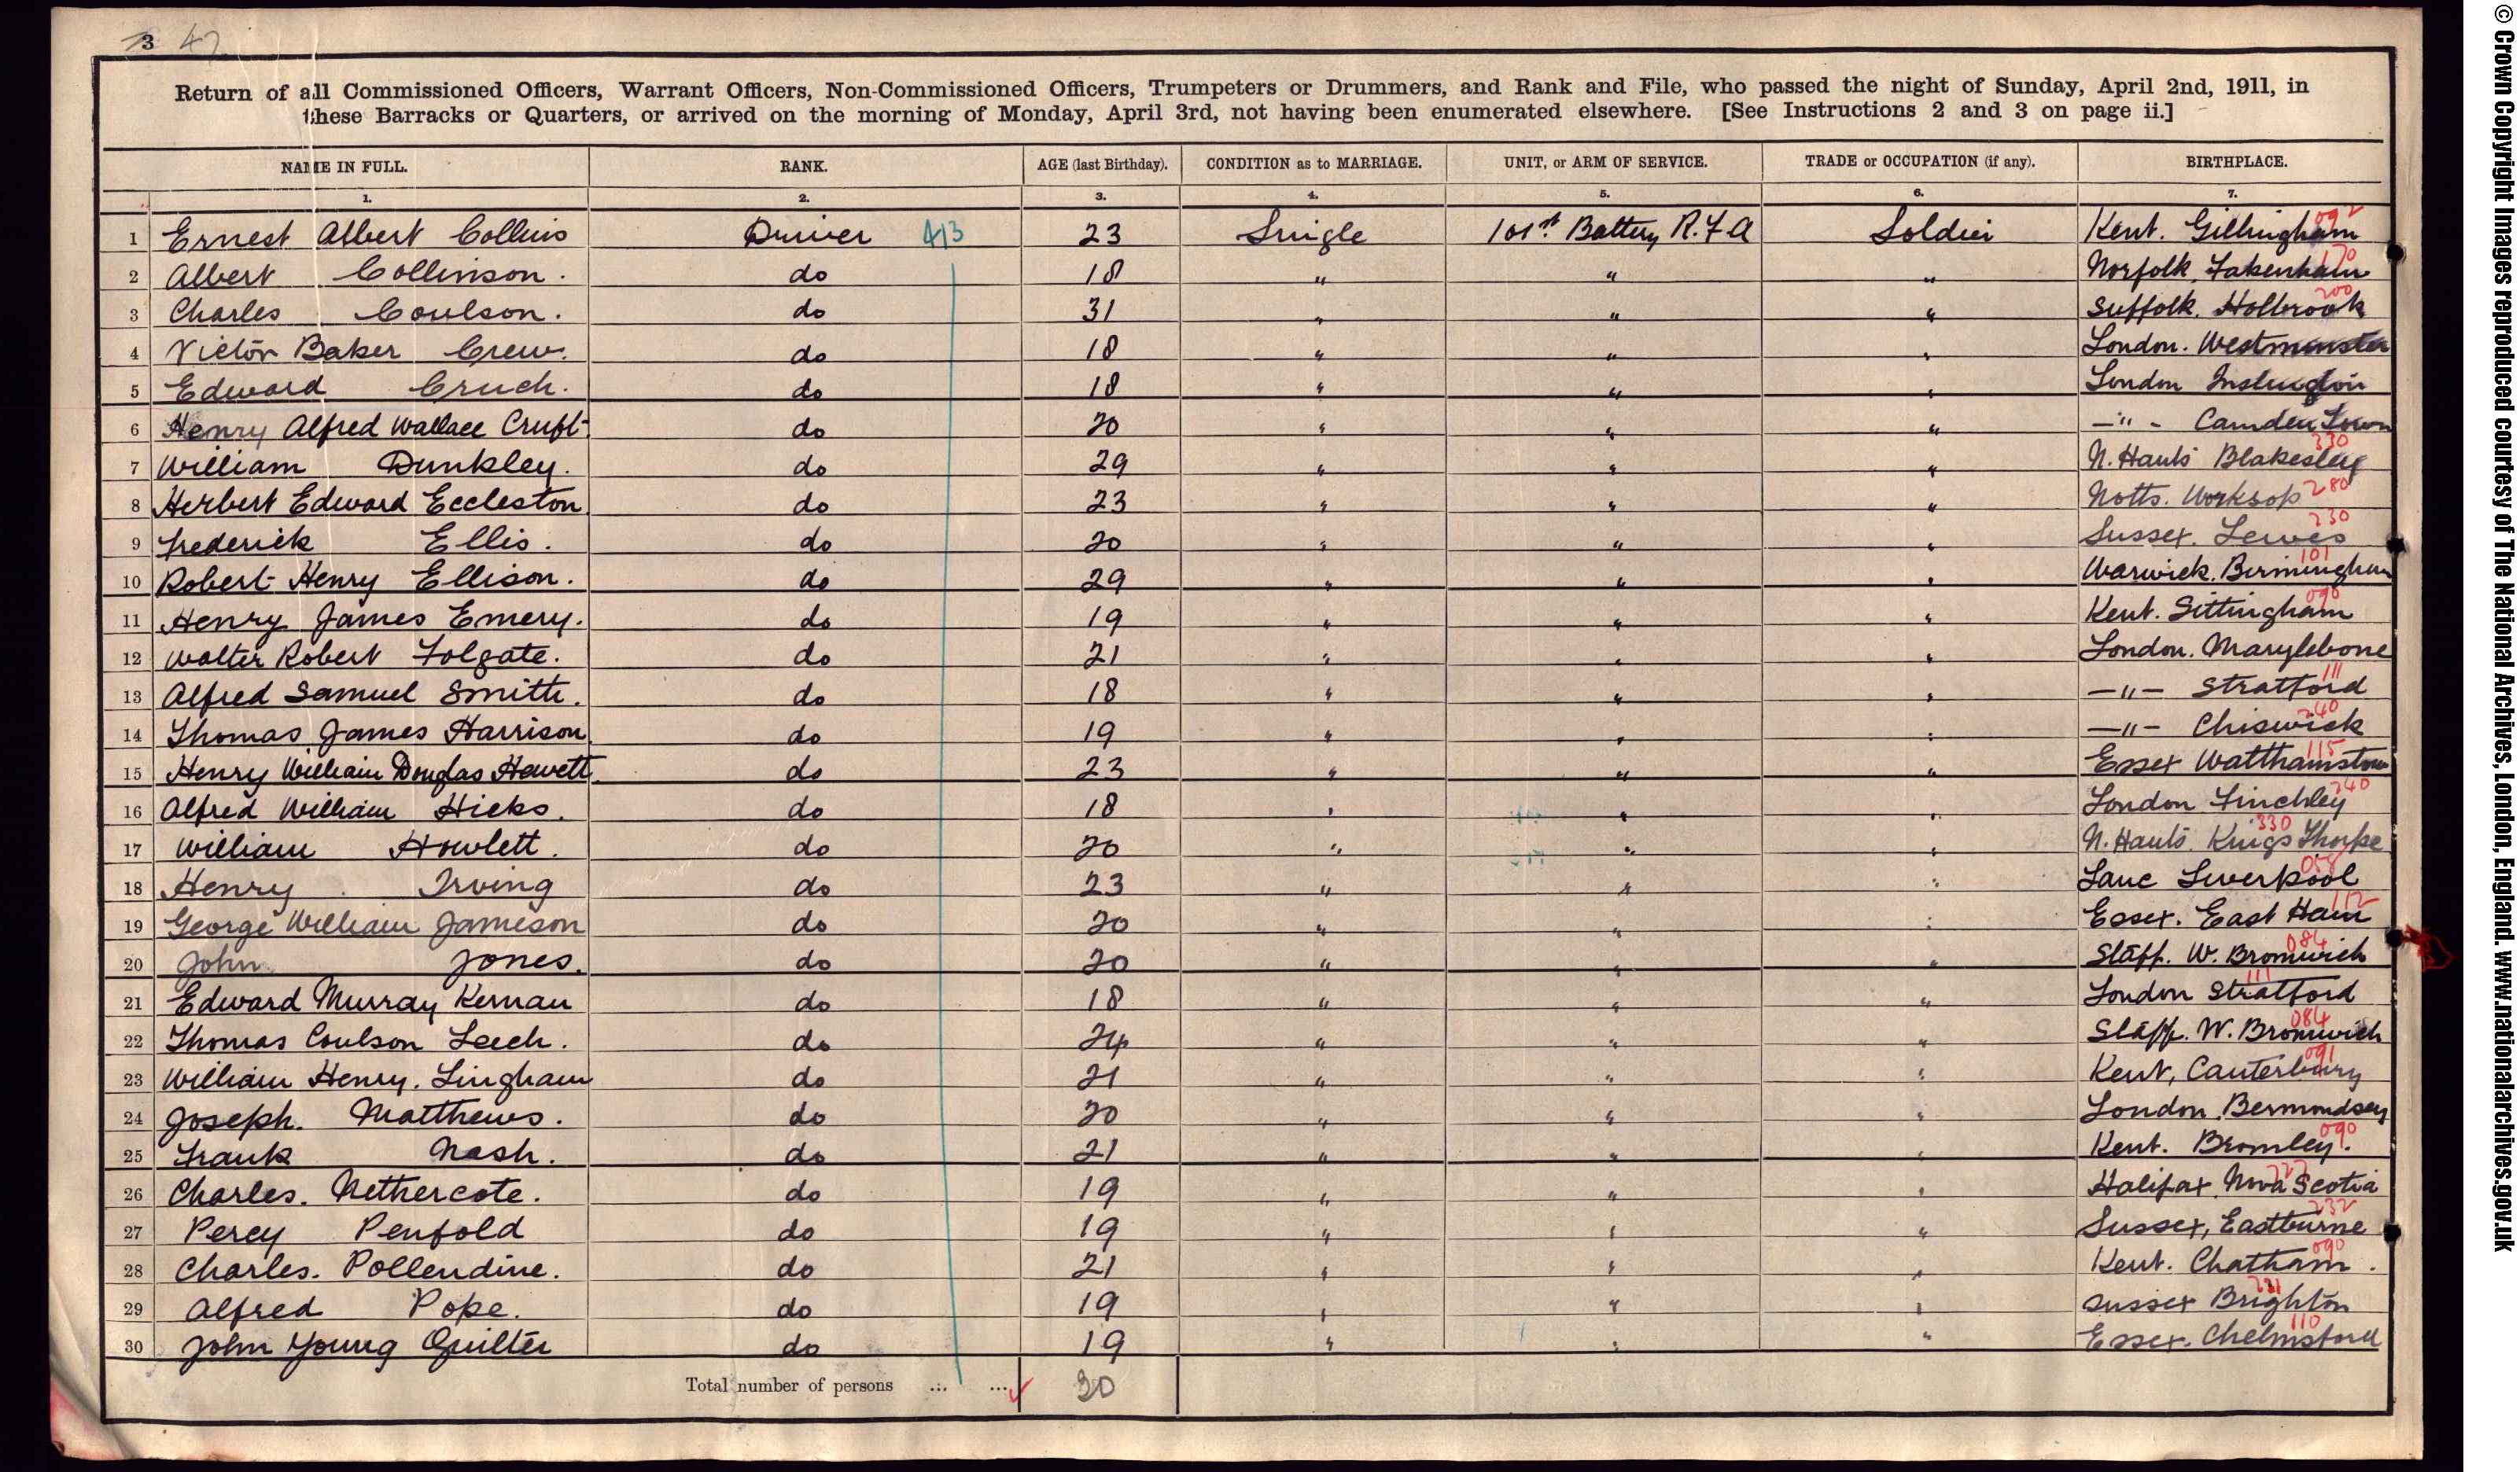 3 47
Return of all Commissioned Officers, Warrant Officers, Non-Commissioned Officers, Trumpeters or Drummers, and Rank and File, who passed the night of Sunday, April 2nd, 1911, in
these Barracks or Quarters, or arrived on the morning of Monday, April 3rd, not having been enumerated elsewhere. [See Instructions 2 and 3 on page ii.]
NAME IN FULL. RANK. AGE (last Birthday). CONDITION as to MARRIAGE. UNIT, or ARM OF SERVICE. TRADE or OCCUPATION (if any). BIRTHPLACE.
1. 2. 3. 4. 5. 6. 7.
1 Ernest Albert Collins Driver 413 23 Single 101st Battery R.F.A Soldier Kent. Gillingham 092
2 Albert Collinson. do 18 " " " Norfolk, Fakenham 170
3 Charles Coulson. do 31 " " " Suffolk. Holbrook 200
4 Victor Baker Crew. do 18 " " " London. Westminster
5 Edward Cruch. do 18 " " " London
6 Henry Alfred Wallace Cruft. do 20 " " " —"— Camden Town
7 William Dunkley. do 29 " " " N. Hants Blakesley 330
8 Herbert Edward Eccleston do 23 " " " Notts. Worksop 280
9 Frederick Ellis. do 20 " " " Sussex. Lewes 230
10 Robert Henry Ellison. do 29 " " " Warwick. Birmingham 101
11 Henry James Emery. do 19 " " " Kent. Sittingham 090
12 Walter Robert Folgate. do 21 " " " London. Marylebone
13 Alfred Samuel Smith. do 18 " " " —"— Stratford 111
14 Thomas James Harrison do 19 " " " —"— Chiswick 240
15 Henry William Douglas Hewett. do 23 " " " Essex Walthamstow 115
16 Alfred William Hicks. do 18 " " " London Finchley 240
17 William Howlett. do 20 " " " N. Hants. Kings Thorpe 330
18 Henry Irving do 23 " " " Lanc Liverpool 058
19 George William Jameson do 20 " " " Essex. East Ham 112
20 John Jones. do 20 " " " Staff. W. Bromwich 084
21 Edward Murray Kernan do 18 " " " London Stratford 111
22 Thomas Coulson Leech. do 24 " " " Staff. W. Bromwich 084
23 William Henry. Lingham do 21 " " " Kent, Canterbury 091
24 Joseph. Matthews. do 20 " " " London. Bermondsey
25 Frank Nash. do 21 " " " Kent. Bromley. 090
26 Charles. Nethercote. do 19 " " " Halifax. Nova Scotia 727
27 Percy Penfold do 19 " " " Sussex, Eastburne 232
28 Charles. Pollendine. do 21 " " " Kent. Chatham. 090
29 Alfred Pope. do 19 " " " Sussex Brighton 231
30 John Young Quilter do 19 " " " Essex. Chelmsford 110
Total number of persons ... ... 30
© Crown Copyright Images reproduced courtesy of The National Archives, London, England. www.nationalarchives.gov.uk